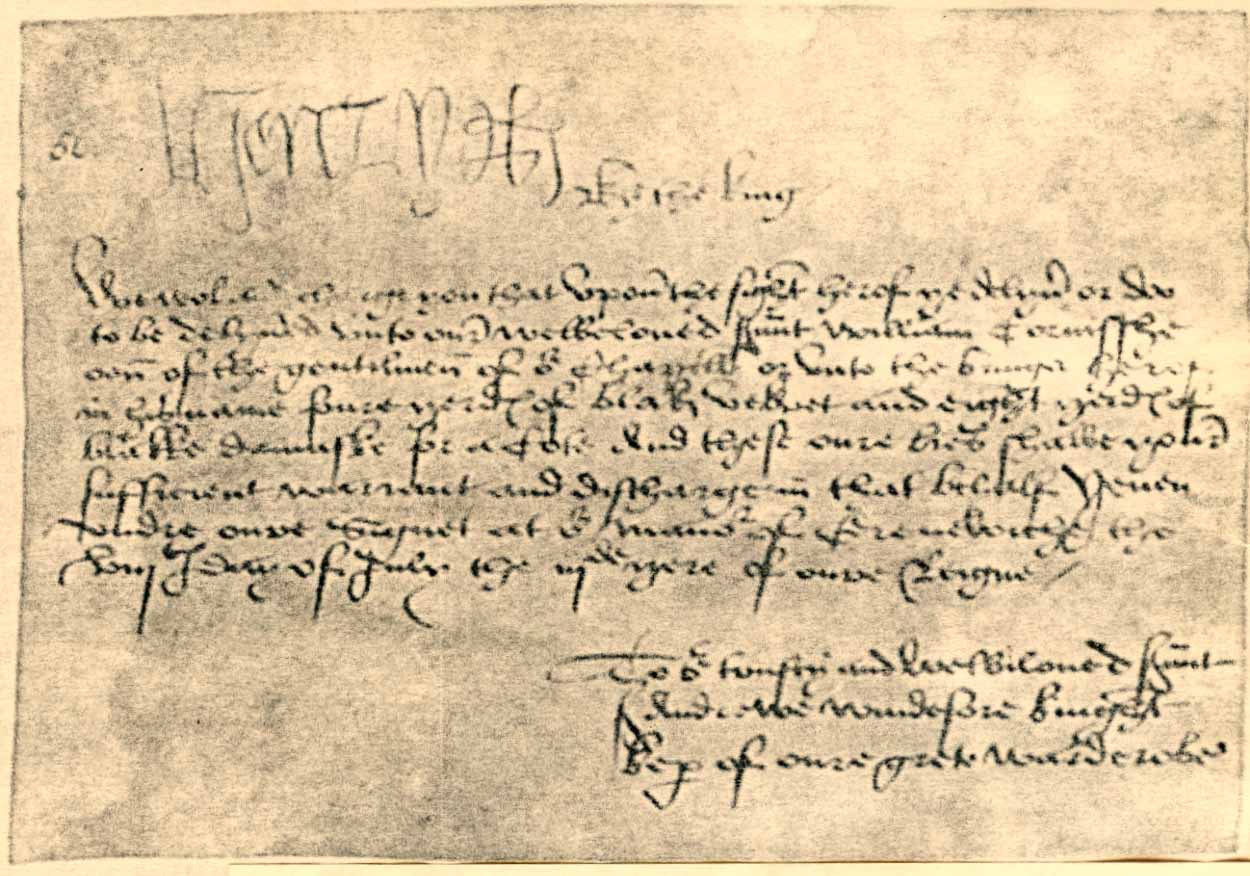 Henry R
By the king
We wol and charge you that upon the sight herof ye delyver or doo
to be delyvered unto our welbeloved sᵛunt William Cornysshe
oon of the gentilmen of oʳ Chapell or unto the bringer herof
in his name foure yerdˢ of blak velvet and eight yerdˢ of
blakke damaske for a Cote And these oure lrēs shalbe your
sufficient warrant and discharge in that behalf Yeven
undre oure Signet at oʳ Manoʳ of Grenewiche the
viijᵗʰ day of July the iijᵈᵉ yere of oure Reigne
To oʳ trusty and Welbiloved sᵛunt
Andrewe Windesore knight
kep of oure grete warderobe